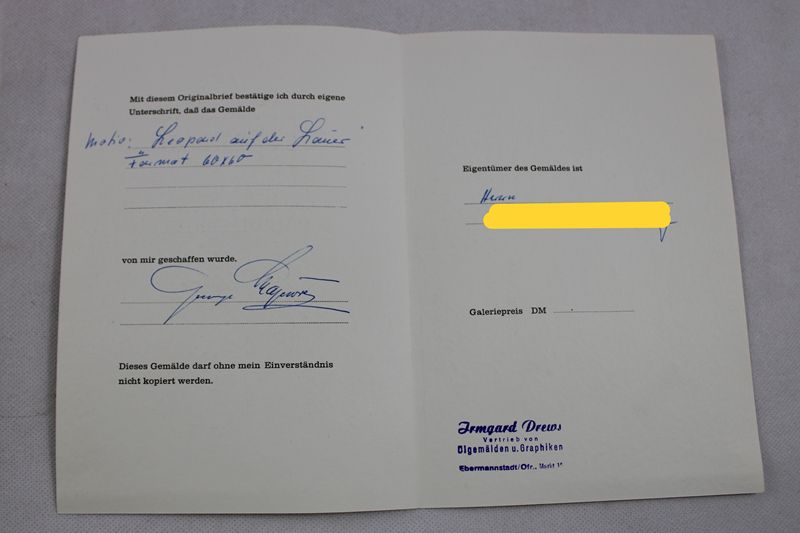 Mit diesem Originalbrief bestätige ich durch eigene
Unterschrift, daß das Gemälde
Motiv: "Leopard auf der Lauer"
Format 60x60
von mir geschaffen wurde.
George
Dieses Gemälde darf ohne mein Einverständnis
nicht kopiert werden.
Eigentümer des Gemäldes ist
Herrn
Galeriepreis DM
Irmgard Drews
Vertrieb von
Ölgemälden u. Graphiken
Ebermannstadt/Ofr., Markt